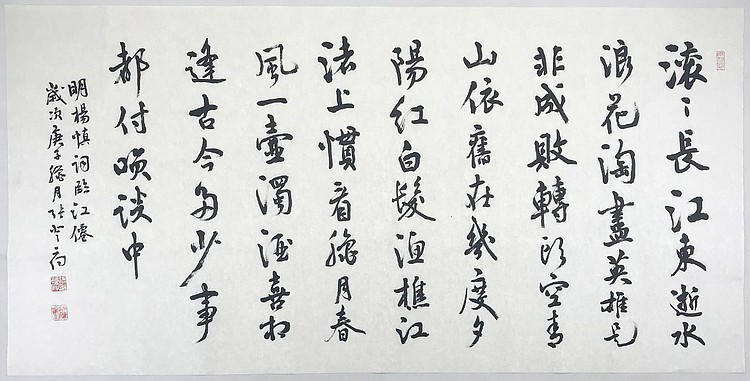 滚〻長江東逝水
浪花淘盡英雄是
非成敗轉頭空青
山依舊在幾度夕
陽紅白髮漁樵江
渚上慣看穐月春
風一壺濁酒喜相
逢古今多少事
都付咲談中
明楊慎詞臨江僊
歲次庚子穐月張